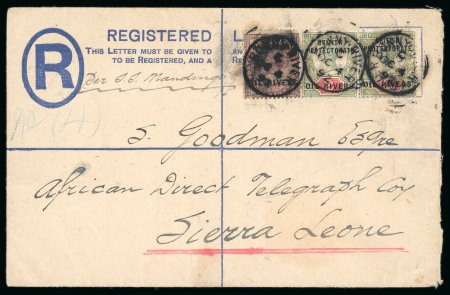 REGISTERED L
THIS LETTER MUST BE GIVEN TO AN
TO BE REGISTERED, AND A
R
Per S.S. Mandingo
BRITISH PROTECTORATE OIL RIVERS
BRITISH PROTECTORATE OIL RIVERS
OIL RIVERS
S. Goodman Esqre
African Direct Telegraph Coy
Sierra Leone